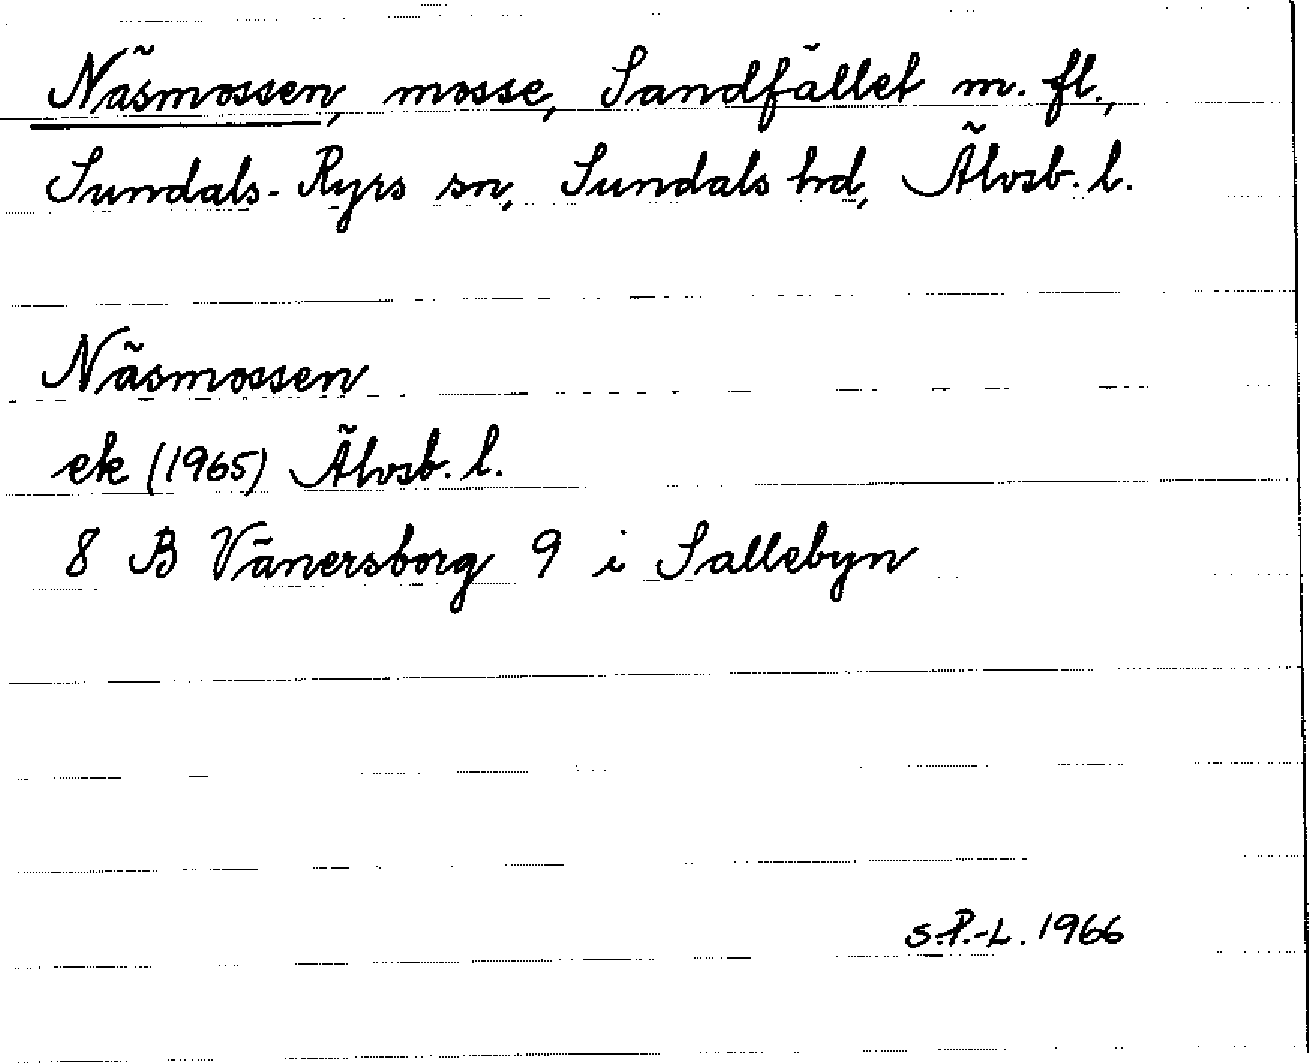 Näsmossen, mosse, Sandfället m. fl.,
Sundals-Ryrs sn, Sundals hd, Älvsb. l.
Näsmossen
ek (1965) Älvsb. l.
8 B Vänersborg 9 i Sallebyn
S.-P.-L. 1966